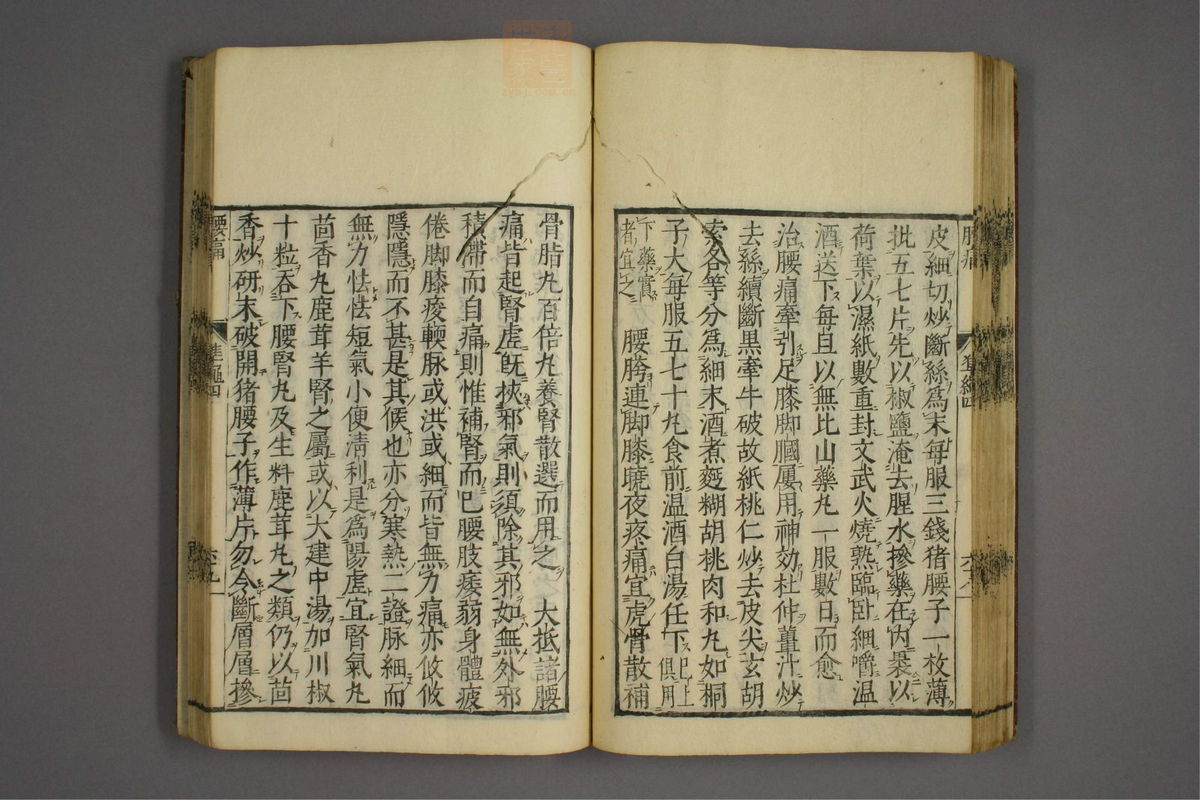 皮細切炒斷絲爲末每服三錢猪腰子一枚薄
批五七片先以椒鹽淹去腥水摻藥在內裹以
荷葉以濕紙數重封文武火燒熟臨臥細嚼温
酒送下每旦以無比山藥丸一服數日而愈
治腰痛牽引足膝脚膕屢用神効杜仲薑汁炒
去絲續斷黑牽牛破故紙桃仁炒去皮尖玄胡
索各等分爲細末酒煮麪糊胡桃肉和丸如桐
子大每服五七十丸食前温酒白湯任下已上俱用
下藥實者宜之 腰胯連脚膝曉夜疼痛宜虎骨散補
骨脂丸百倍丸養腎散選而用之 大抵諸腰
痛皆起腎虛旣挾邪氣則須除其邪如無外邪
積滯而自痛則惟補腎而已腰肢痿弱身體疲
倦脚膝痠輭脉或洪或細而皆無力痛亦攸攸
隱隱而不甚是其候也亦分寒熱二證脉細而
無力怯怯短氣小便清利是爲陽虛宜腎氣丸
茴香丸鹿茸羊腎之屬或以大建中湯加川椒
十粒吞下腰腎丸及生料鹿茸丸之類仍以茴
香炒研末破開猪腰子作薄片勿令斷層層摻
腰痛